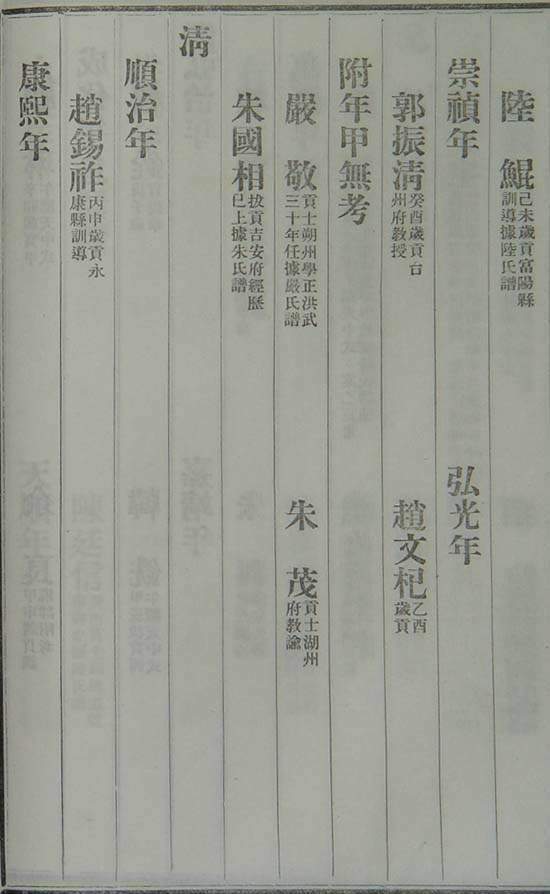 陸鯤 己未歲貢富陽縣訓導據陸氏譜
崇禎年 弘光年
郭振清 癸酉歲貢台州府教授 趙文杞 乙酉歲貢
附年甲無考
嚴敬 貢士朔州學正洪武三十年任據嚴氏譜 朱茂 貢士湖州府教諭
朱國相 拔貢吉安府經歷已上據朱氏譜
清
順治年
趙錫祚 丙申歲貢永康縣訓導
康熙年